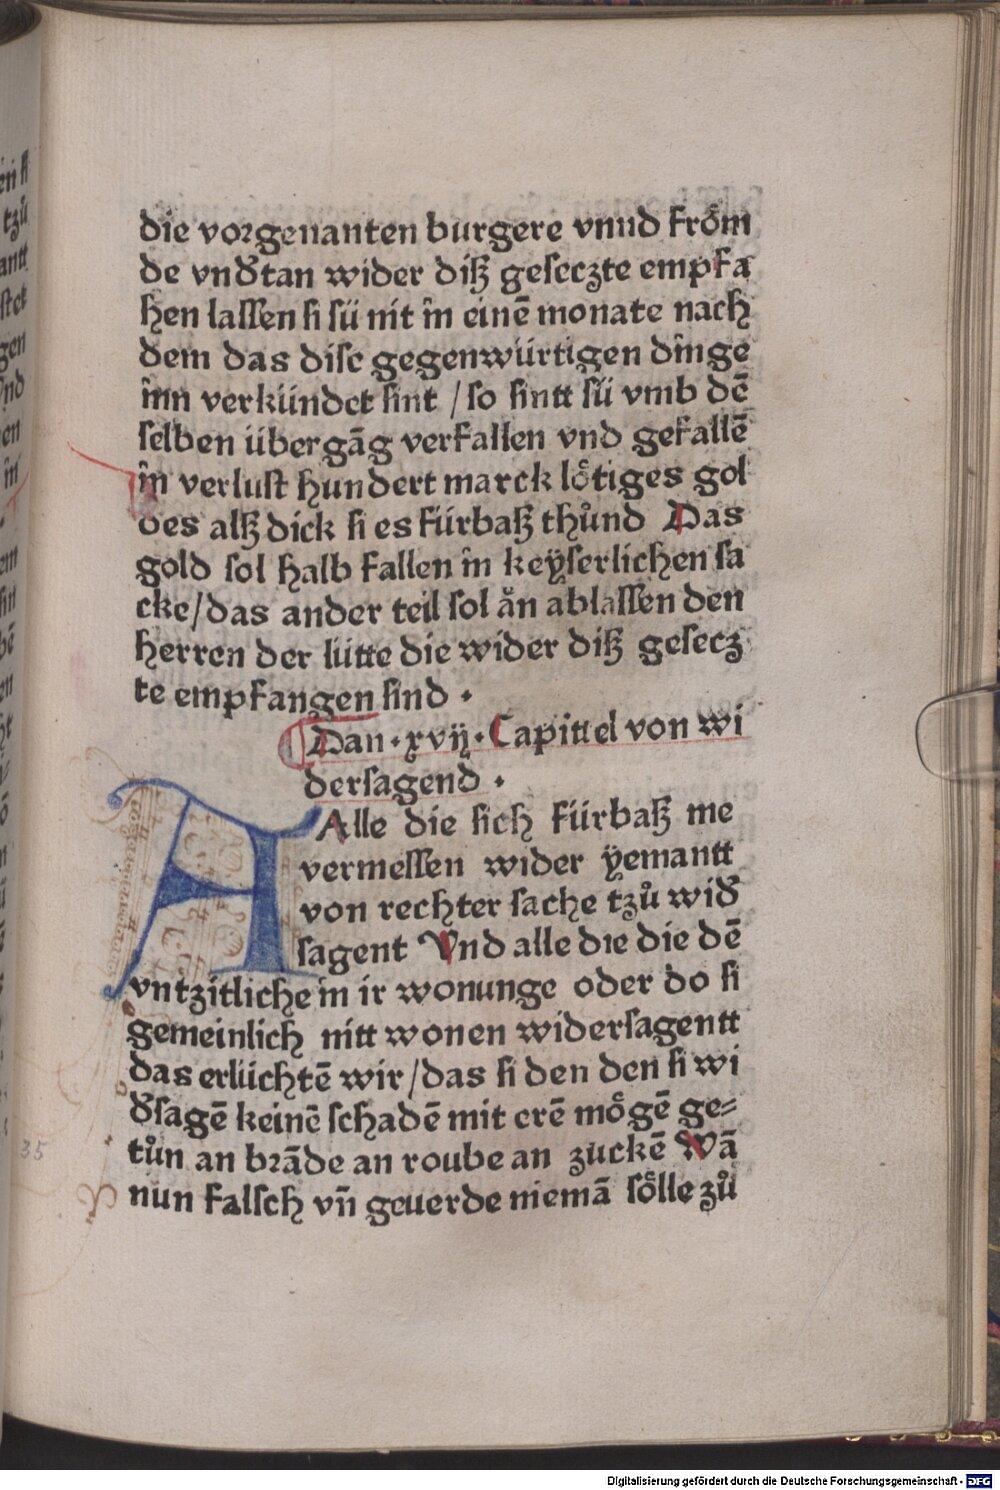 die vorgenanten burgere vnnd froͤm
de vnd̕tan wider diſz geſeczte empfa
hen laſſen ſi ſü nit in einē monate nach
dem das diſe gegenwürtigen dinge
inn verkündet ſint / ſo ſintt ſü vmb dē
ſelben übergāg verfallen vnd gefallē
in verluſt hundert marck loͤtiges gol
des alſz dick ſi es fürbaſz thuͦnd Das
gold ſol halb fallen in keyſerlichen ſa
cke/das ander teil ſol aͤn ablaſſen den
herren der lütte die wider diſz geſecz
te empfangen ſind .
Dan . xvij . Capittel von wi
derſagend .
Alle die ſich fürbaſz me
vermeſſen wider yemantt
von rechter ſache tzuͦ wid̕
ſagent Vnd alle die die dē
vntzitliche in ir wonunge oder do ſi
gemeinlich nitt wonen widerſagentt
das erlüchtē wir/das ſi den den ſi wi
d̕ſagē keinē ſchadē mit erē moͤgē ge=
tuͦn an brāde an roube an zuckē Wā
nun falſch vn̄ geuerde niemā ſoͤlle zuͦ
35
Digitalisierung gefördert durch die Deutsche Forschungsgemeinschaft - DFG